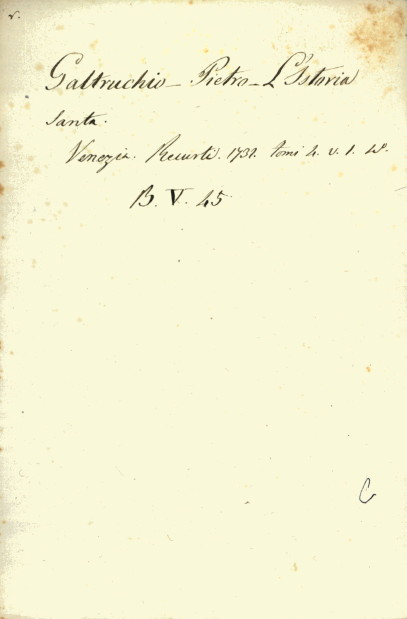 v.
Galtruchio - Pietro - L'Istoria
Santa.
Venezia. Recurti. 1731. tomi 4. v. 1. 4º.
B. V. 45.
C